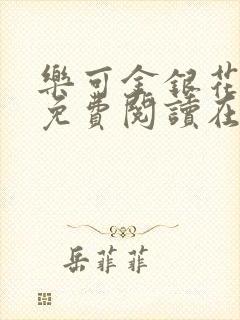 樂可金銀花
免費閱讀在
岳菲菲